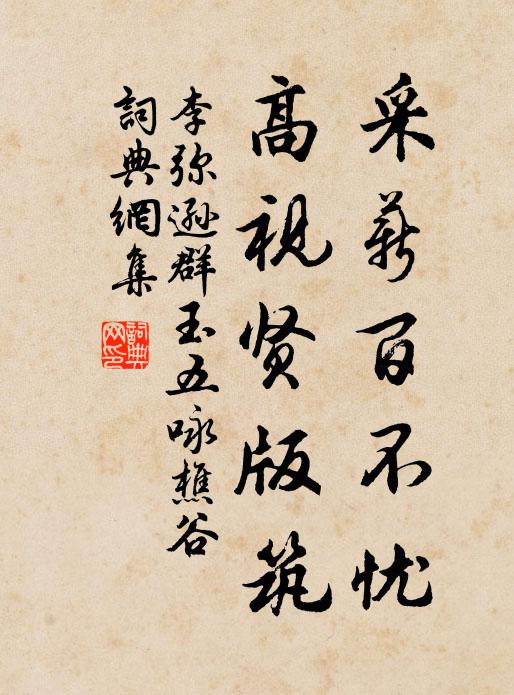 采薪百不忧
高视贤版筑
李弥逊群玉五咏樵谷
词典網集
詞典網印